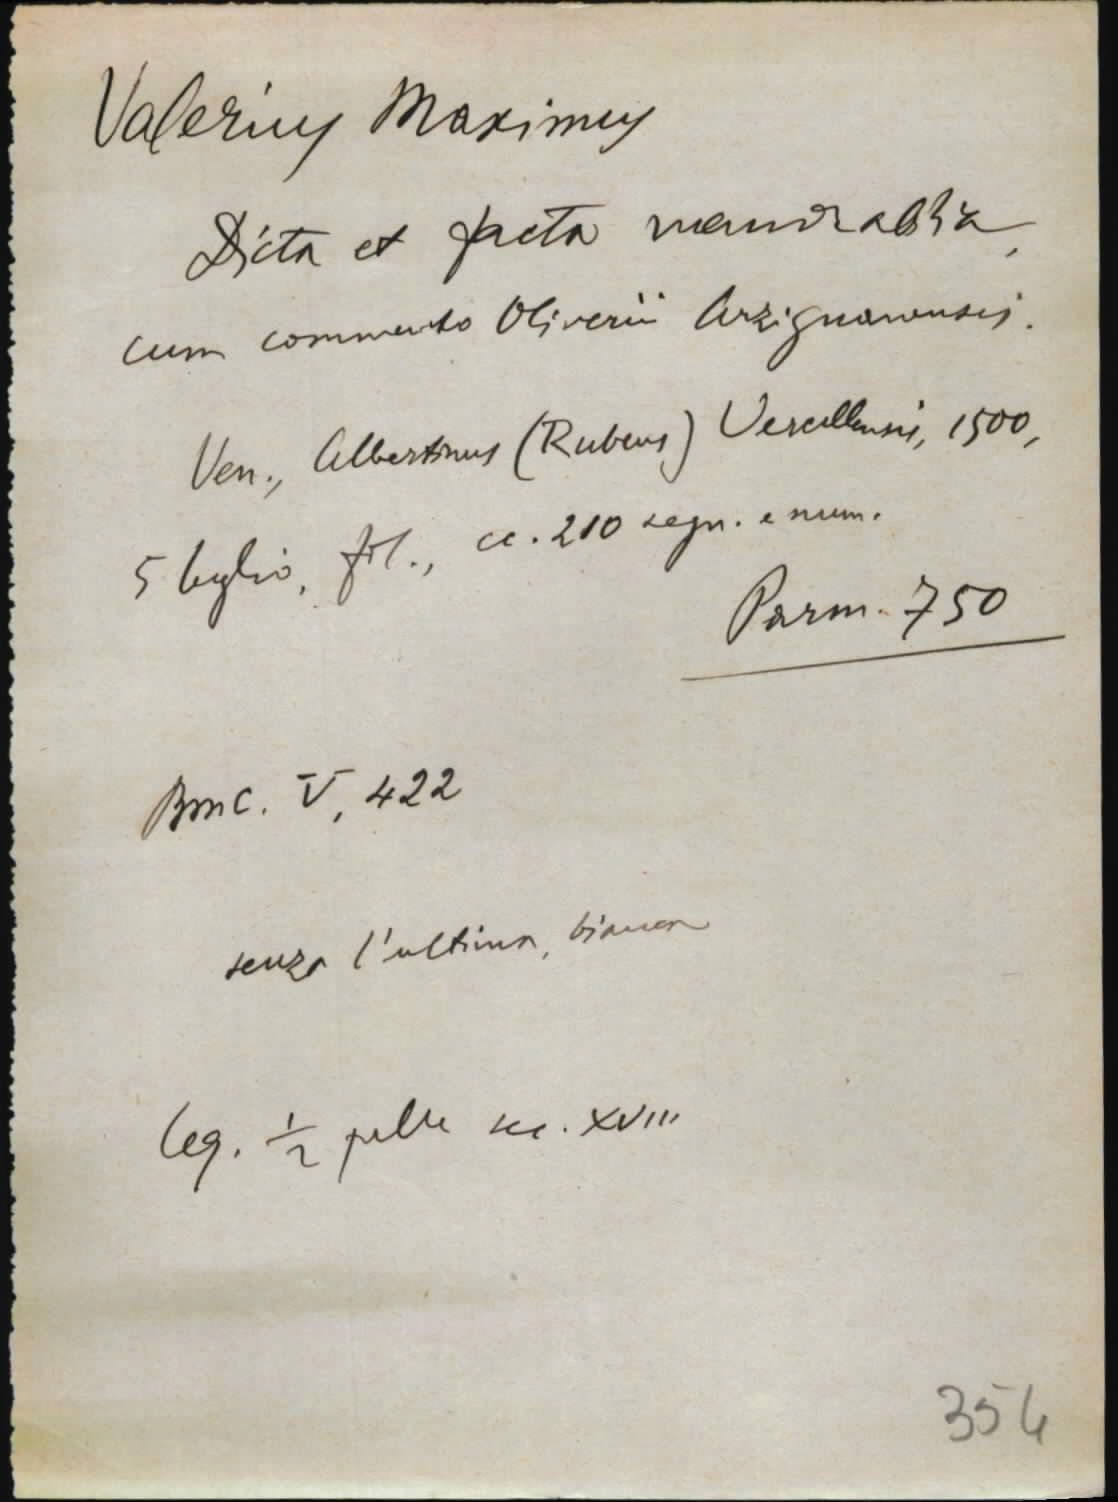 Valerius Maximus
Dicta et facta memorabilia,
cum commento Oliverii Arzignanensis.
Ven., Albertinus (Rubeus) Vercellensis, 1500,
5 luglio, fol., cc. 210 segn. e num.
Parm. 750
BMC. V, 422
senza l'ultima, bianca
leg. 1/2 pelle sec. XVIII
354